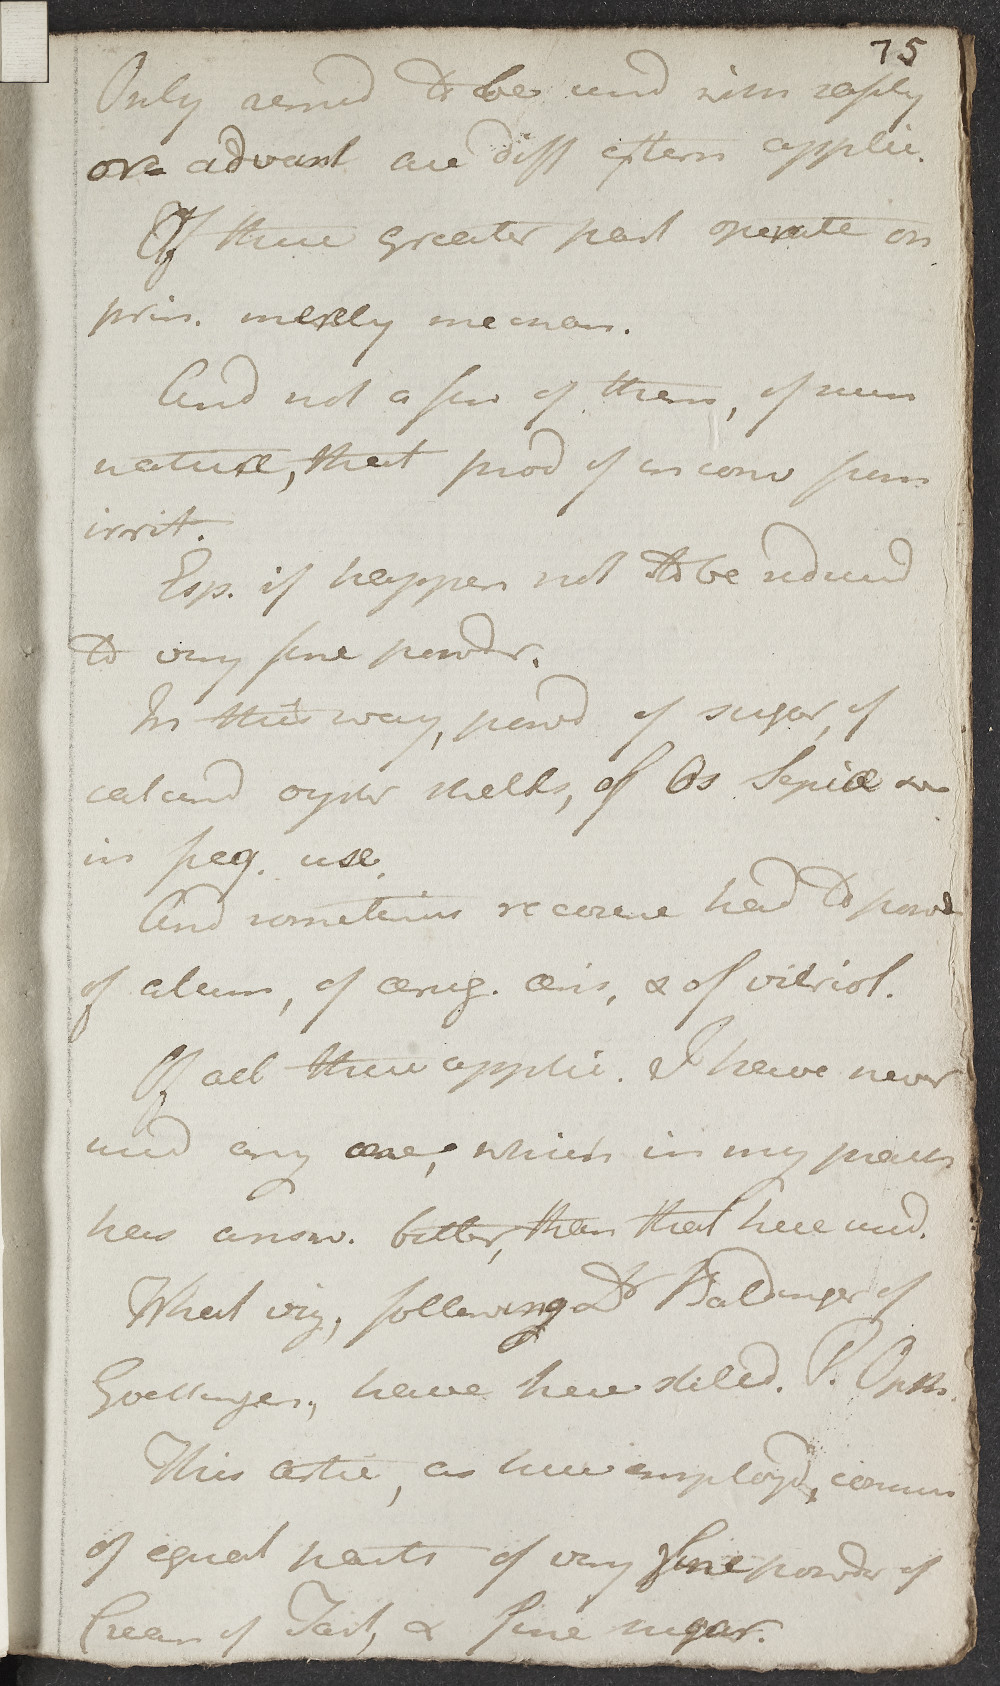 75
Only remd to be used with safety
or advant are diff extern applic.
Of these greater part operate on
prin. merely mechan.
And not a few of them, of such
nature, that prod of inconv from
irrit.
Esp. if happen not to be reduced
to very fine powdr.
In this way, powd of sugar, of
calcined oyster shells, of Os Sepiæ are
in freq. use.
And sometimes recourse had to powd
of alum, of ærug. æris, & of vitriol.
Of all these applic. I have never
used any one, which in my pract
has answ. better, than that here used.
What viz, following Dr Baldinger of
Goettingen, have here stiled. P. Opth.
This artic, as here employd, consists
of equal parts of very fine powdr of
Cream of Tart, & fine sugar.